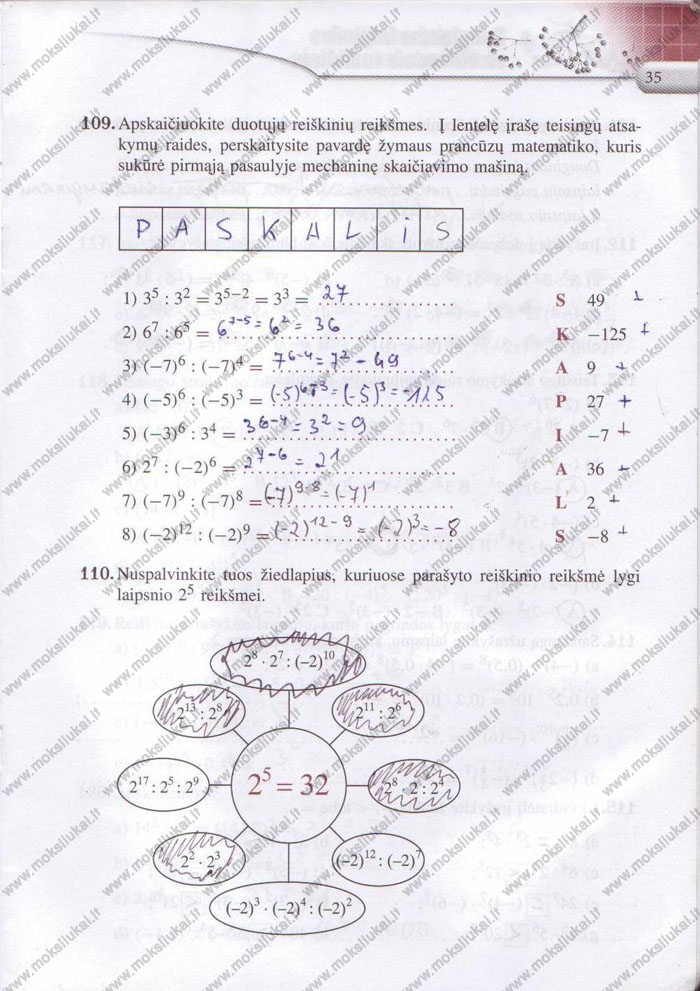 35
109. Apskaičiuokite duotųjų reiškinių reikšmes. Į lentelę įrašę teisingų atsa-
kymų raides, perskaitysite pavardę žymaus prancūzų matematiko, kuris
sukūrė pirmąją pasaulyje mechaninę skaičiavimo mašiną.
P A S K A L I S
1) 3⁵ : 3² = 3⁵⁻² = 3³ = 27 S 49
2) 6⁷ : 6⁵ = 6⁷⁻⁵ = 6² = 36 K −125
3) (−7)⁶ : (−7)⁴ = 7⁶⁻⁴ = 7² = 49 A 9
4) (−5)⁶ : (−5)³ = (−5)⁶⁻³ = (−5)³ = −125 P 27
5) (−3)⁶ : 3⁴ = 3⁶⁻⁴ = 3² = 9 I −7
6) 2⁷ : (−2)⁶ = 2⁷⁻⁶ = 21 A 36
7) (−7)⁹ : (−7)⁸ = (−7)⁹⁻⁸ = (−7)¹ L 2
8) (−2)¹² : (−2)⁹ = (−2)¹²⁻⁹ = (−2)³ = −8 S −8
110. Nuspalvinkite tuos žiedlapius, kuriuose parašyto reiškinio reikšmė lygi
laipsnio 2⁵ reikšmei.
2⁸ · 2⁷ : (−2)¹⁰
2¹³ : 2⁸
2¹¹ : 2⁶
2¹⁷ : 2⁵ : 2⁹
2⁵ = 32
2⁸ · 2 : 2⁴
2² · 2³
(−2)¹² : (−2)⁷
(−2)³ · (−2)⁴ : (−2)²
www.moksliukai.lt